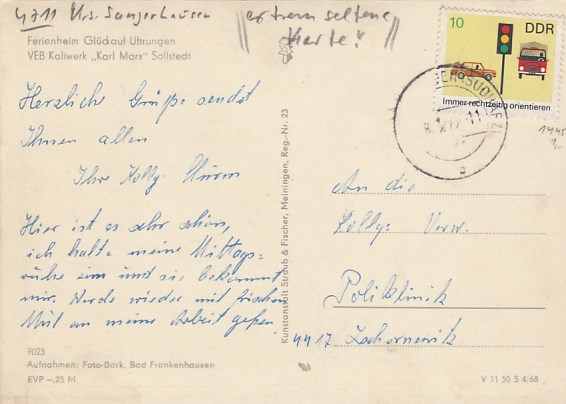 4711 Krs. Sangerhausen
extrem seltene
Karte!
Ferienheim Glückauf Uftrungen
VEB Kaliwerk „Karl Marx" Sollstedt
Herzliche Grüße sendet
Ihnen allen
Ihre Kollg. Sturm
Hier ist es sehr schön,
ich halte meine Mittags-
ruhe ein und sie bekommt
mir. Werde wieder mit frischem
Mut an meine Arbeit gehen.
7023
Aufnahmen: Foto-Bark, Bad Frankenhausen
EVP –,25 M
Kunstanstalt Straub & Fischer, Meiningen, Reg.-Nr. 23
10 DDR
Immer rechtzeitig orientieren
(SÜDHARZ)
An die
Kollg. Verw.
Poliklinik
4417 Zschornewitz
V 11 50 S 4/68